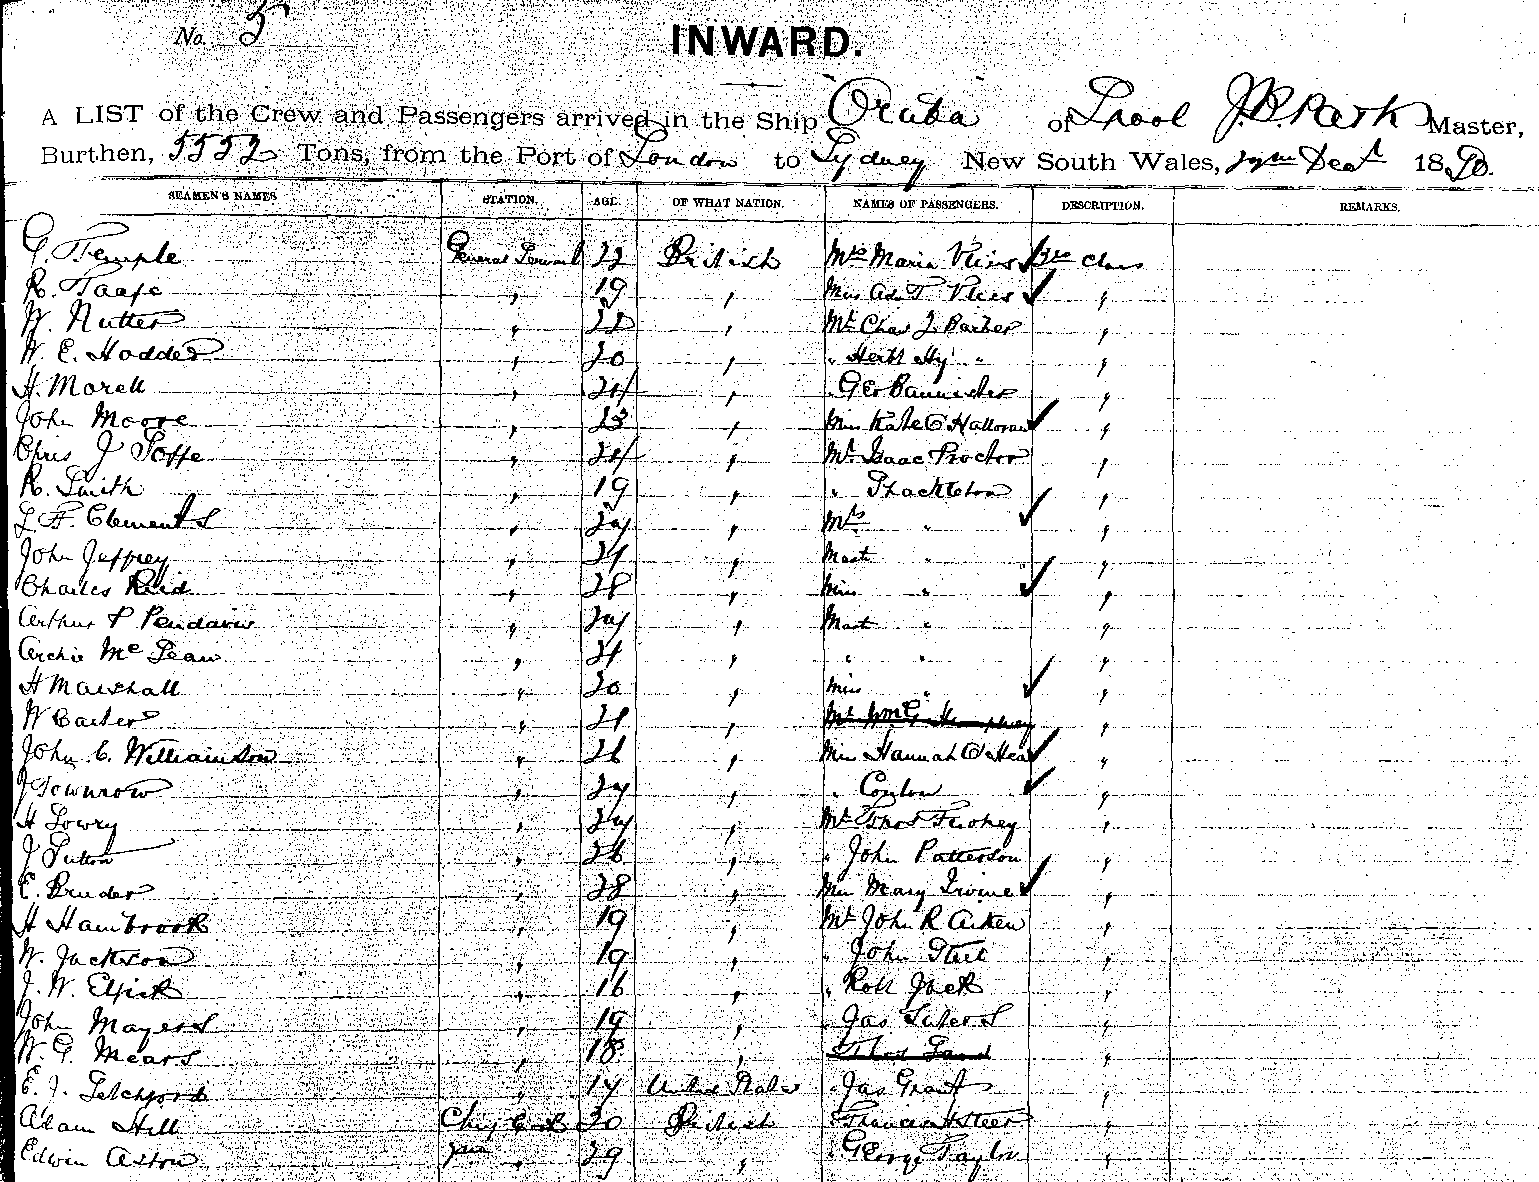 No. 5
INWARD.
A LIST of the Crew and Passengers arrived in the Ship "Oruba" of Lpool J.B. Park Master,
Burthen, 5552 Tons, from the Port of London to Sydney New South Wales, Decr 1890.
SEAMEN'S NAMES STATION. AGE. OF WHAT NATION. NAMES OF PASSENGERS. DESCRIPTION. REMARKS.
G. Temple General Servant 22 British Mrs Maria Class
R. Taafe " 19 " Miss "
W. Nutter " 22 " Mr Chas J. Barber "
W. E. Hodder " 20 " " Herbt Hy " "
H. Morell " 24 " " Geo Bannister "
John Moore " 23 " Miss Kate O'Halloran "
Chris J " 24 " Mr Isaac Proctor "
R. Smith " 19 " " Shackleton "
Clements " " Mrs " "
John Jeffrey " 21 " Mast " "
Charles Reid " 28 " Miss " "
Arthur P Pendarvis " 24 " Mast " "
Archie McLean " 21 " " " "
H Marshall " 20 " Miss " "
W Carter " 21 " Mr Wm G. Humphrey "
John C. Williamson " 26 " Miss Hannah O'Hea "
" 24 " " Conlon "
H Lowry " 24 " Mr "
J Sutton " 26 " " John Patterson "
E. Bruder " 28 " Miss Mary Irvine "
H Hambrook " 19 " Mr John R Aitken "
W. Jackson " 19 " " John "
J. W. " 16 " " Robt Jack "
John Mayers " 19 " " Jas "
W. G. Mears " 18 " "
E. J. " 17 United States " Jas Grant "
Adam Hill Chief Cook 30 British " Steer "
Edwin Aston " 29 " " George Taylor "